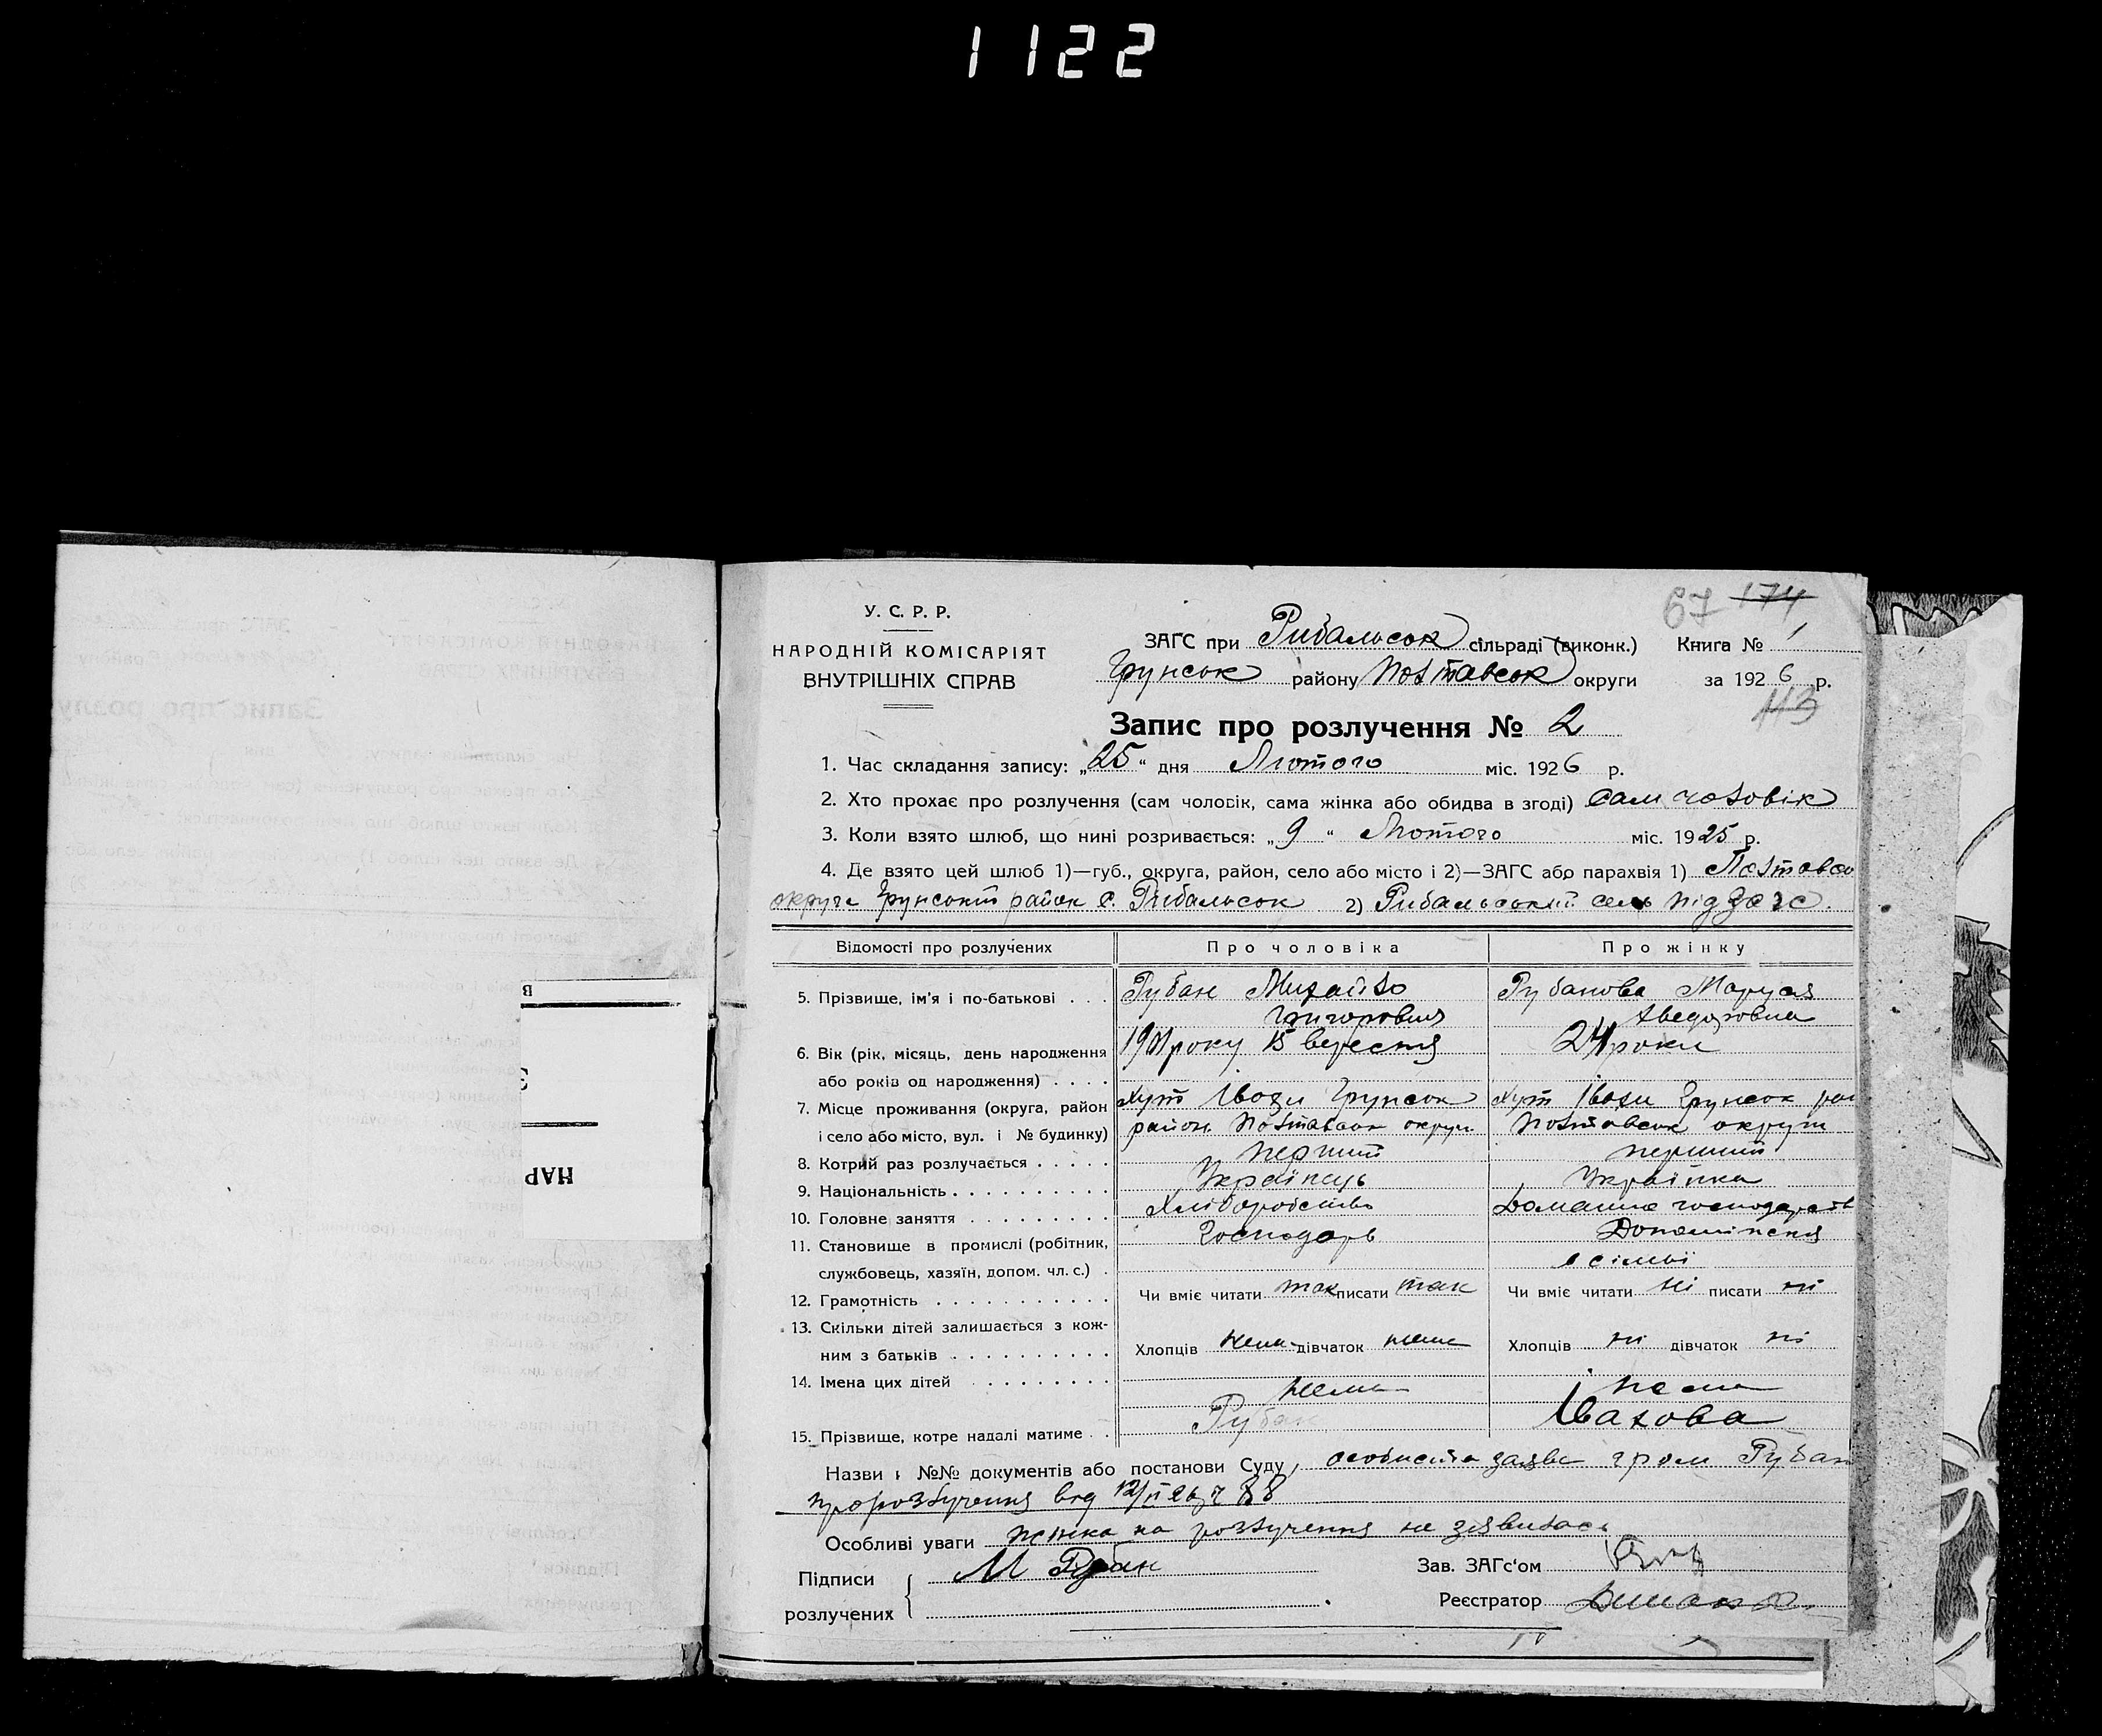 1122
67 174
У. С. Р. Р.
НАРОДНІЙ КОМІСАРІЯТ
ВНУТРІШНІХ СПРАВ
ЗАГС при Рибальськ сільраді (виконк.) Книга № 1
Грунськ району Полтавськ округи за 1926 р.
113
Запис про розлучення № 2
1. Час складання запису: „25“ дня Лютого міс. 1926 р.
2. Хто прохає про розлучення (сам чоловік, сама жінка або обидва в згоді) Сам чоловік
3. Коли взято шлюб, що нині розривається: „9“ Лютого міс. 1925 р.
4. Де взято цей шлюб 1)—губ., округа, район, село або місто і 2)—ЗАГС або парахвія 1) Полтавськ
округа Грунський район с. Рибальськ 2) Рибальський підзагс.
Відомості про розлучених Про чоловіка Про жінку
5. Прізвище, ім'я і по-батькові . . . Рубан Михайло Рубанова Маруся
Григорович
6. Вік (рік, місяць, день народження 1901 року 15 вересня 24 роки
або років од народження) . . . .
7. Місце проживання (округа, район Хут Івахи Грунськ Хут Івахи Грунськ рай
і село або місто, вул. і № будинку) район Полтавськ округи Полтавськ округи
8. Котрий раз розлучається . . . . . перший перший
9. Національність . . . . . . . . . . Українець Українка
10. Головне заняття . . . . . . . . . Хліборобство Домашне господарств
11. Становище в промислі (робітник, Господарь
службовець, хазяїн, допом. чл. с.) . в сімьї
12. Грамотність . . . . . . . . . . . Чи вміє читати так писати так Чи вміє читати ні писати ні
13. Скільки дітей залишається з кож-
ним з батьків . . . . . . . . . . Хлопців нема дівчаток нема Хлопців ні дівчаток ні
14. Імена цих дітей . . . . . . . . . нема нема
15. Прізвище, котре надалі матиме . . Рубан Івахова
Назви і №№ документів або постанови Суду, особиста заява гром Рубан
про розлучення від 12/II 26 р ч 88
Особливі уваги жінка на розлучення не зявилась
Підписи М Рубан Зав. ЗАГс'ом
розлучених Реєстратор
В
НАР